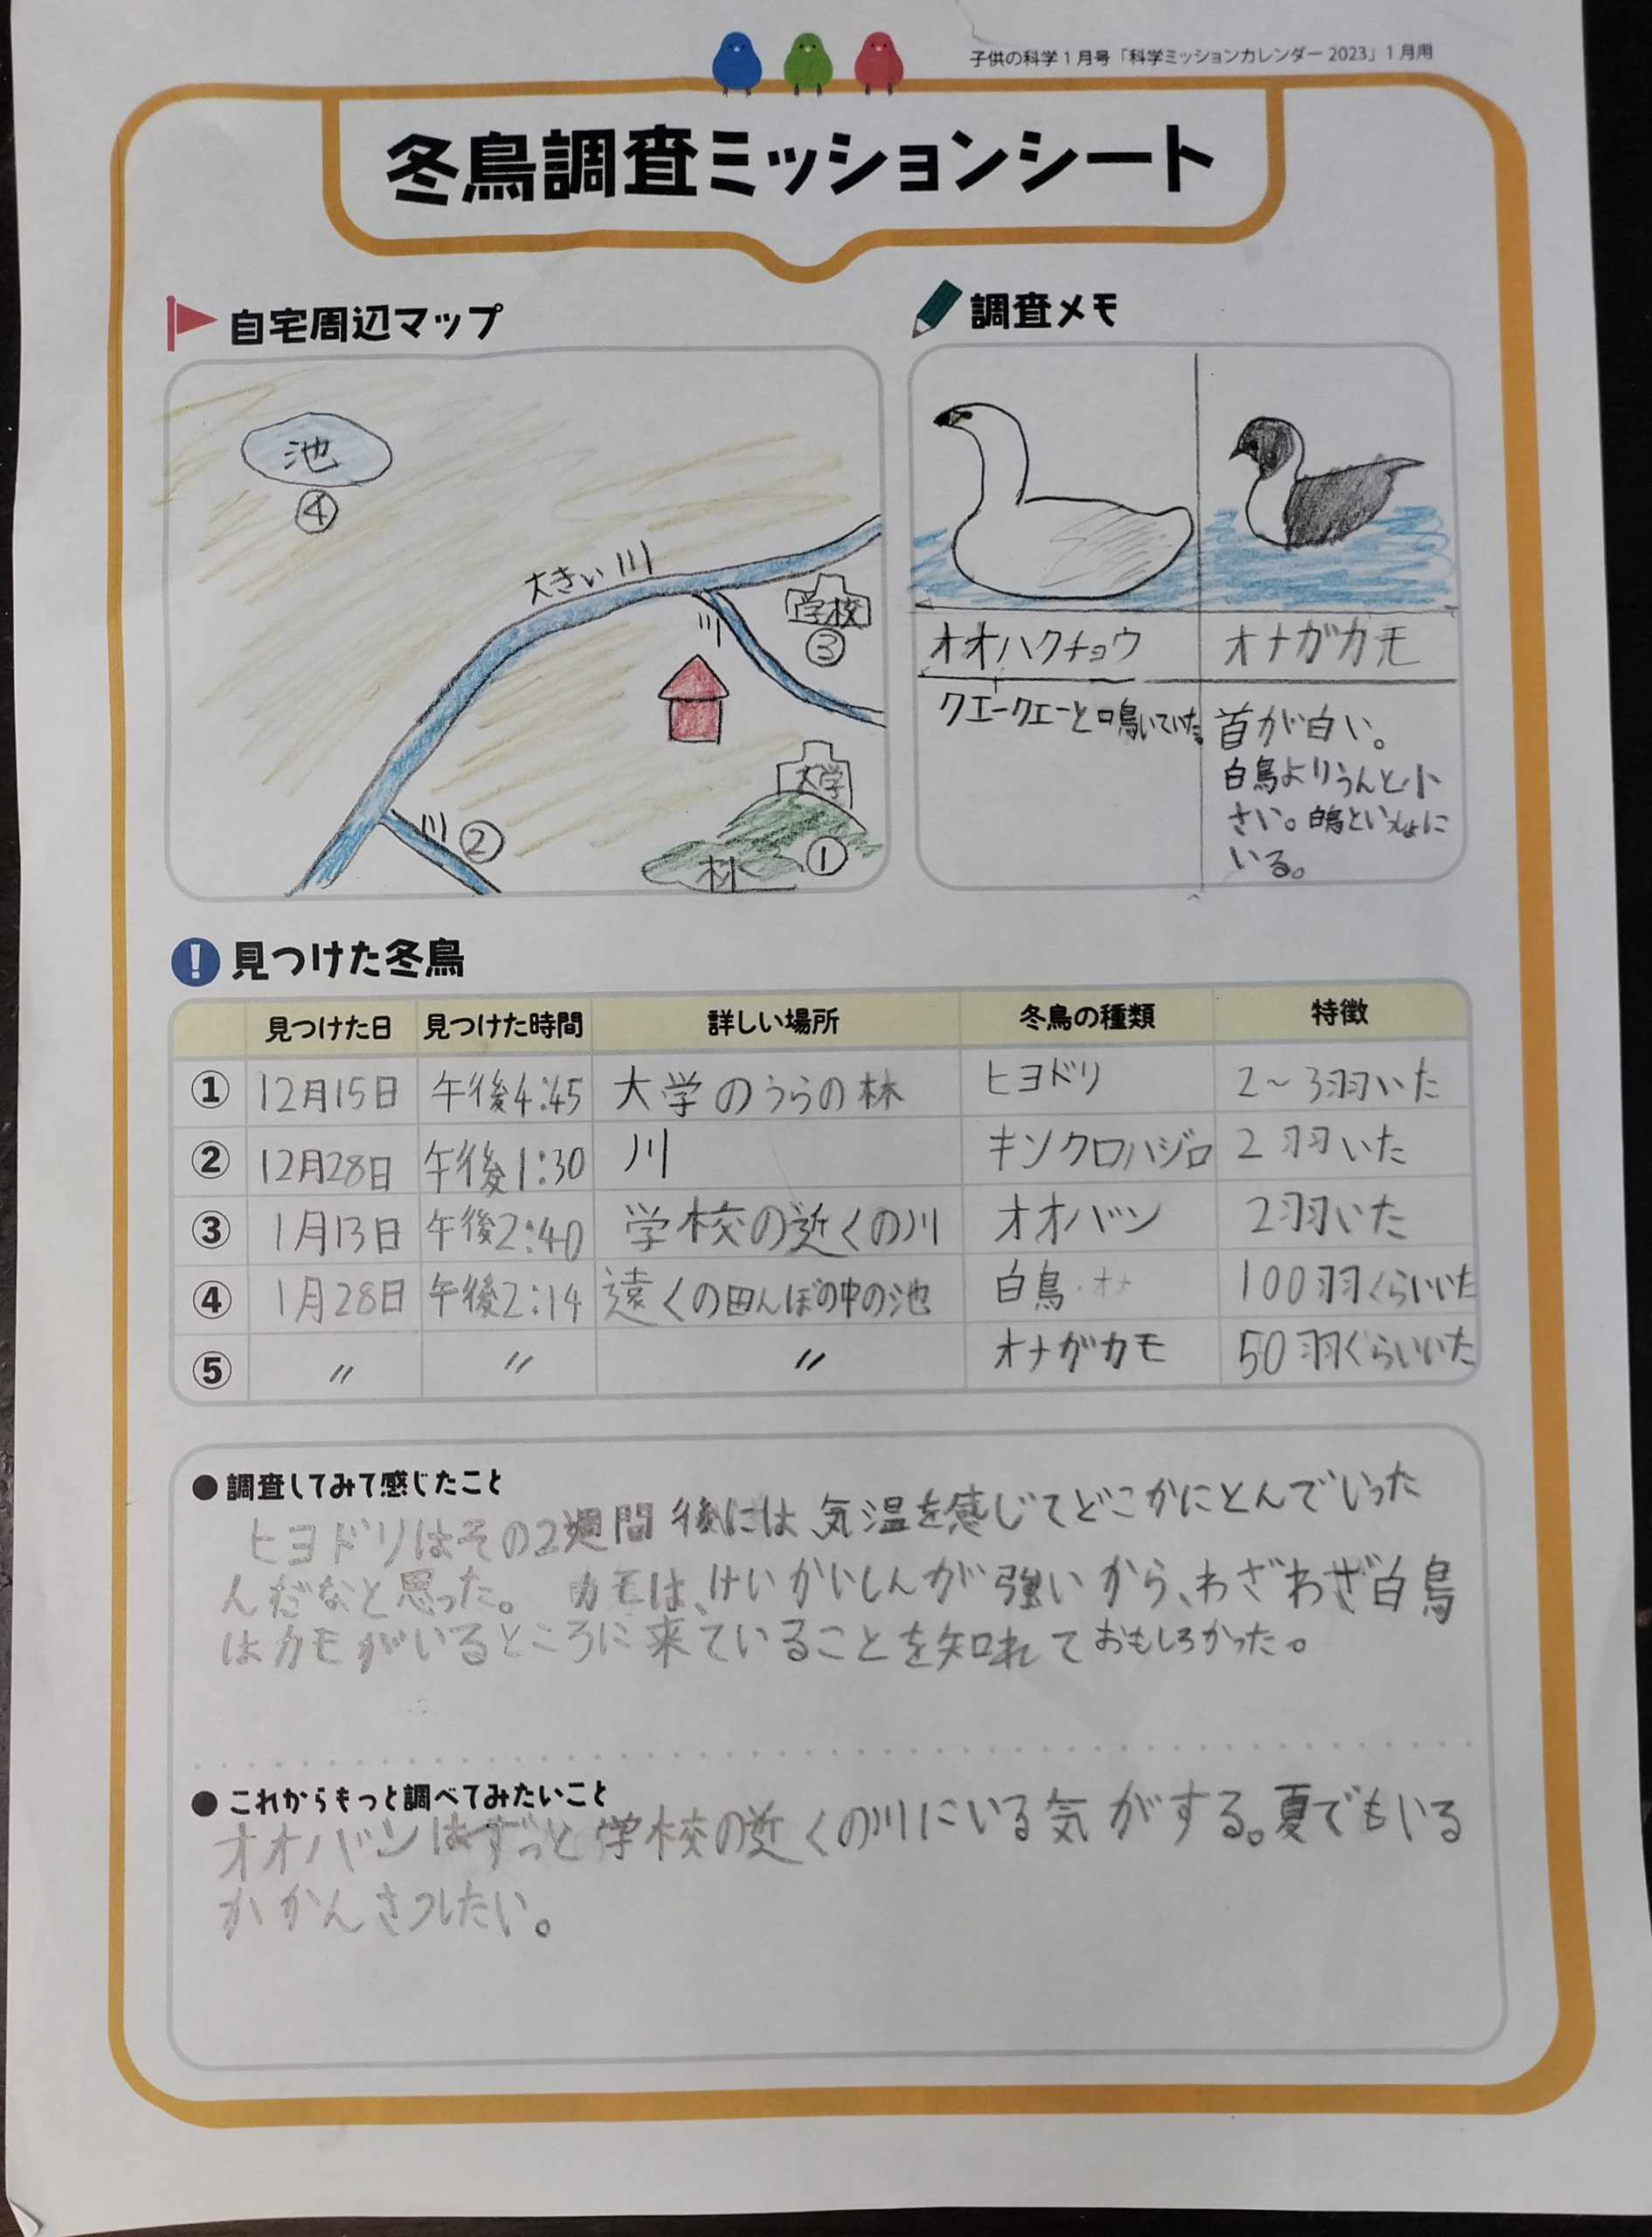 子供の科学1月号「科学ミッションカレンダー2023」1月用
冬鳥調査ミッションシート
自宅周辺マップ
池
④
大きい川
川
学校
③
大学
林
①
川
②
調査メモ
オオハクチョウ
オナガカモ
クエークエーと鳴いていた。
首が白い。
白鳥よりうんと小
さい。白鳥といっしょに
いる。
! 見つけた冬鳥
見つけた日 見つけた時間 詳しい場所 冬鳥の種類 特徴
① 12月15日 午後4:45 大学のうらの林 ヒヨドリ 2～3羽いた
② 12月28日 午後1:30 川 キンクロハジロ 2羽いた
③ 1月13日 午後2:40 学校の近くの川 オオバン 2羽いた
④ 1月28日 午後2:14 遠くの田んぼの中の池 白鳥 100羽くらいいた
⑤ 〃 〃 〃 オナガカモ 50羽ぐらいいた
●調査してみて感じたこと
ヒヨドリはその2週間後には気温を感じてどこかにとんでいった
んだなと思った。カモは、けいかいしんが強いから、わざわざ白鳥
はカモがいるところに来ていることを知れておもしろかった。
●これからもっと調べてみたいこと
オオバンはずっと学校の近くの川にいる気がする。夏でもいる
かかんさつしたい。